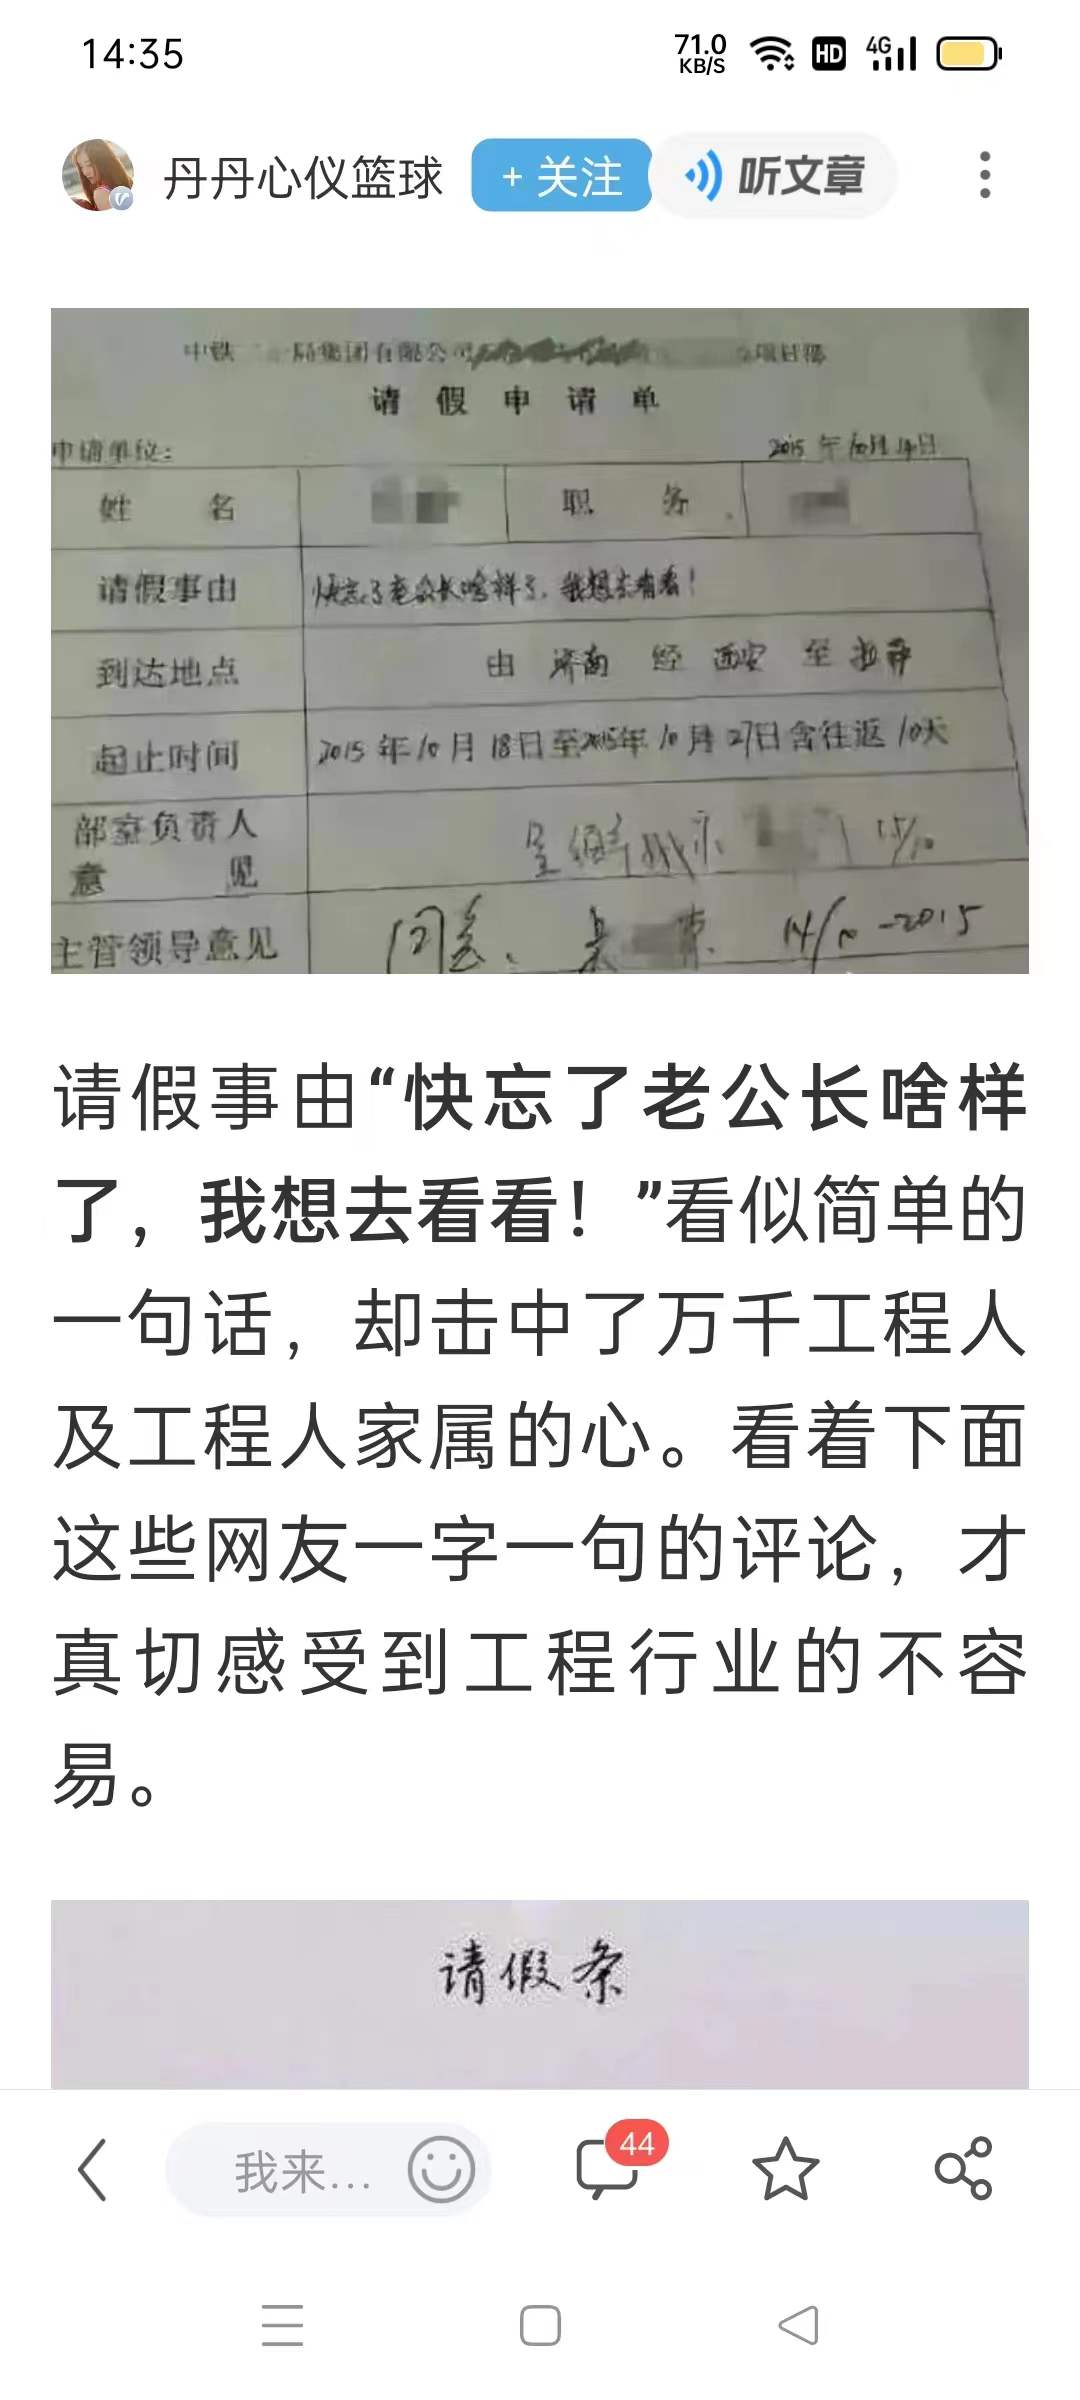 14:35
71.0
KB/S
HD
4G
丹丹心仪篮球
+ 关注
听文章
局集团有限公司
项目部
请假申请单
申请单位:
2015 年 10月 14日
姓 名
职 务
请假事由
快忘了老公长啥样了，我想去看看！
到达地点
由 济南 经 西安 至 拉萨
起止时间
2015 年 10 月 18日至2015年 10 月 27日含往返 10天
部室负责人
意 见
15/10
主管领导意见
同意.
14/10-2015
请假事由“快忘了老公长啥样
了，我想去看看！”看似简单的
一句话，却击中了万千工程人
及工程人家属的心。看着下面
这些网友一字一句的评论，才
真切感受到工程行业的不容
易。
请假条
我来...
44